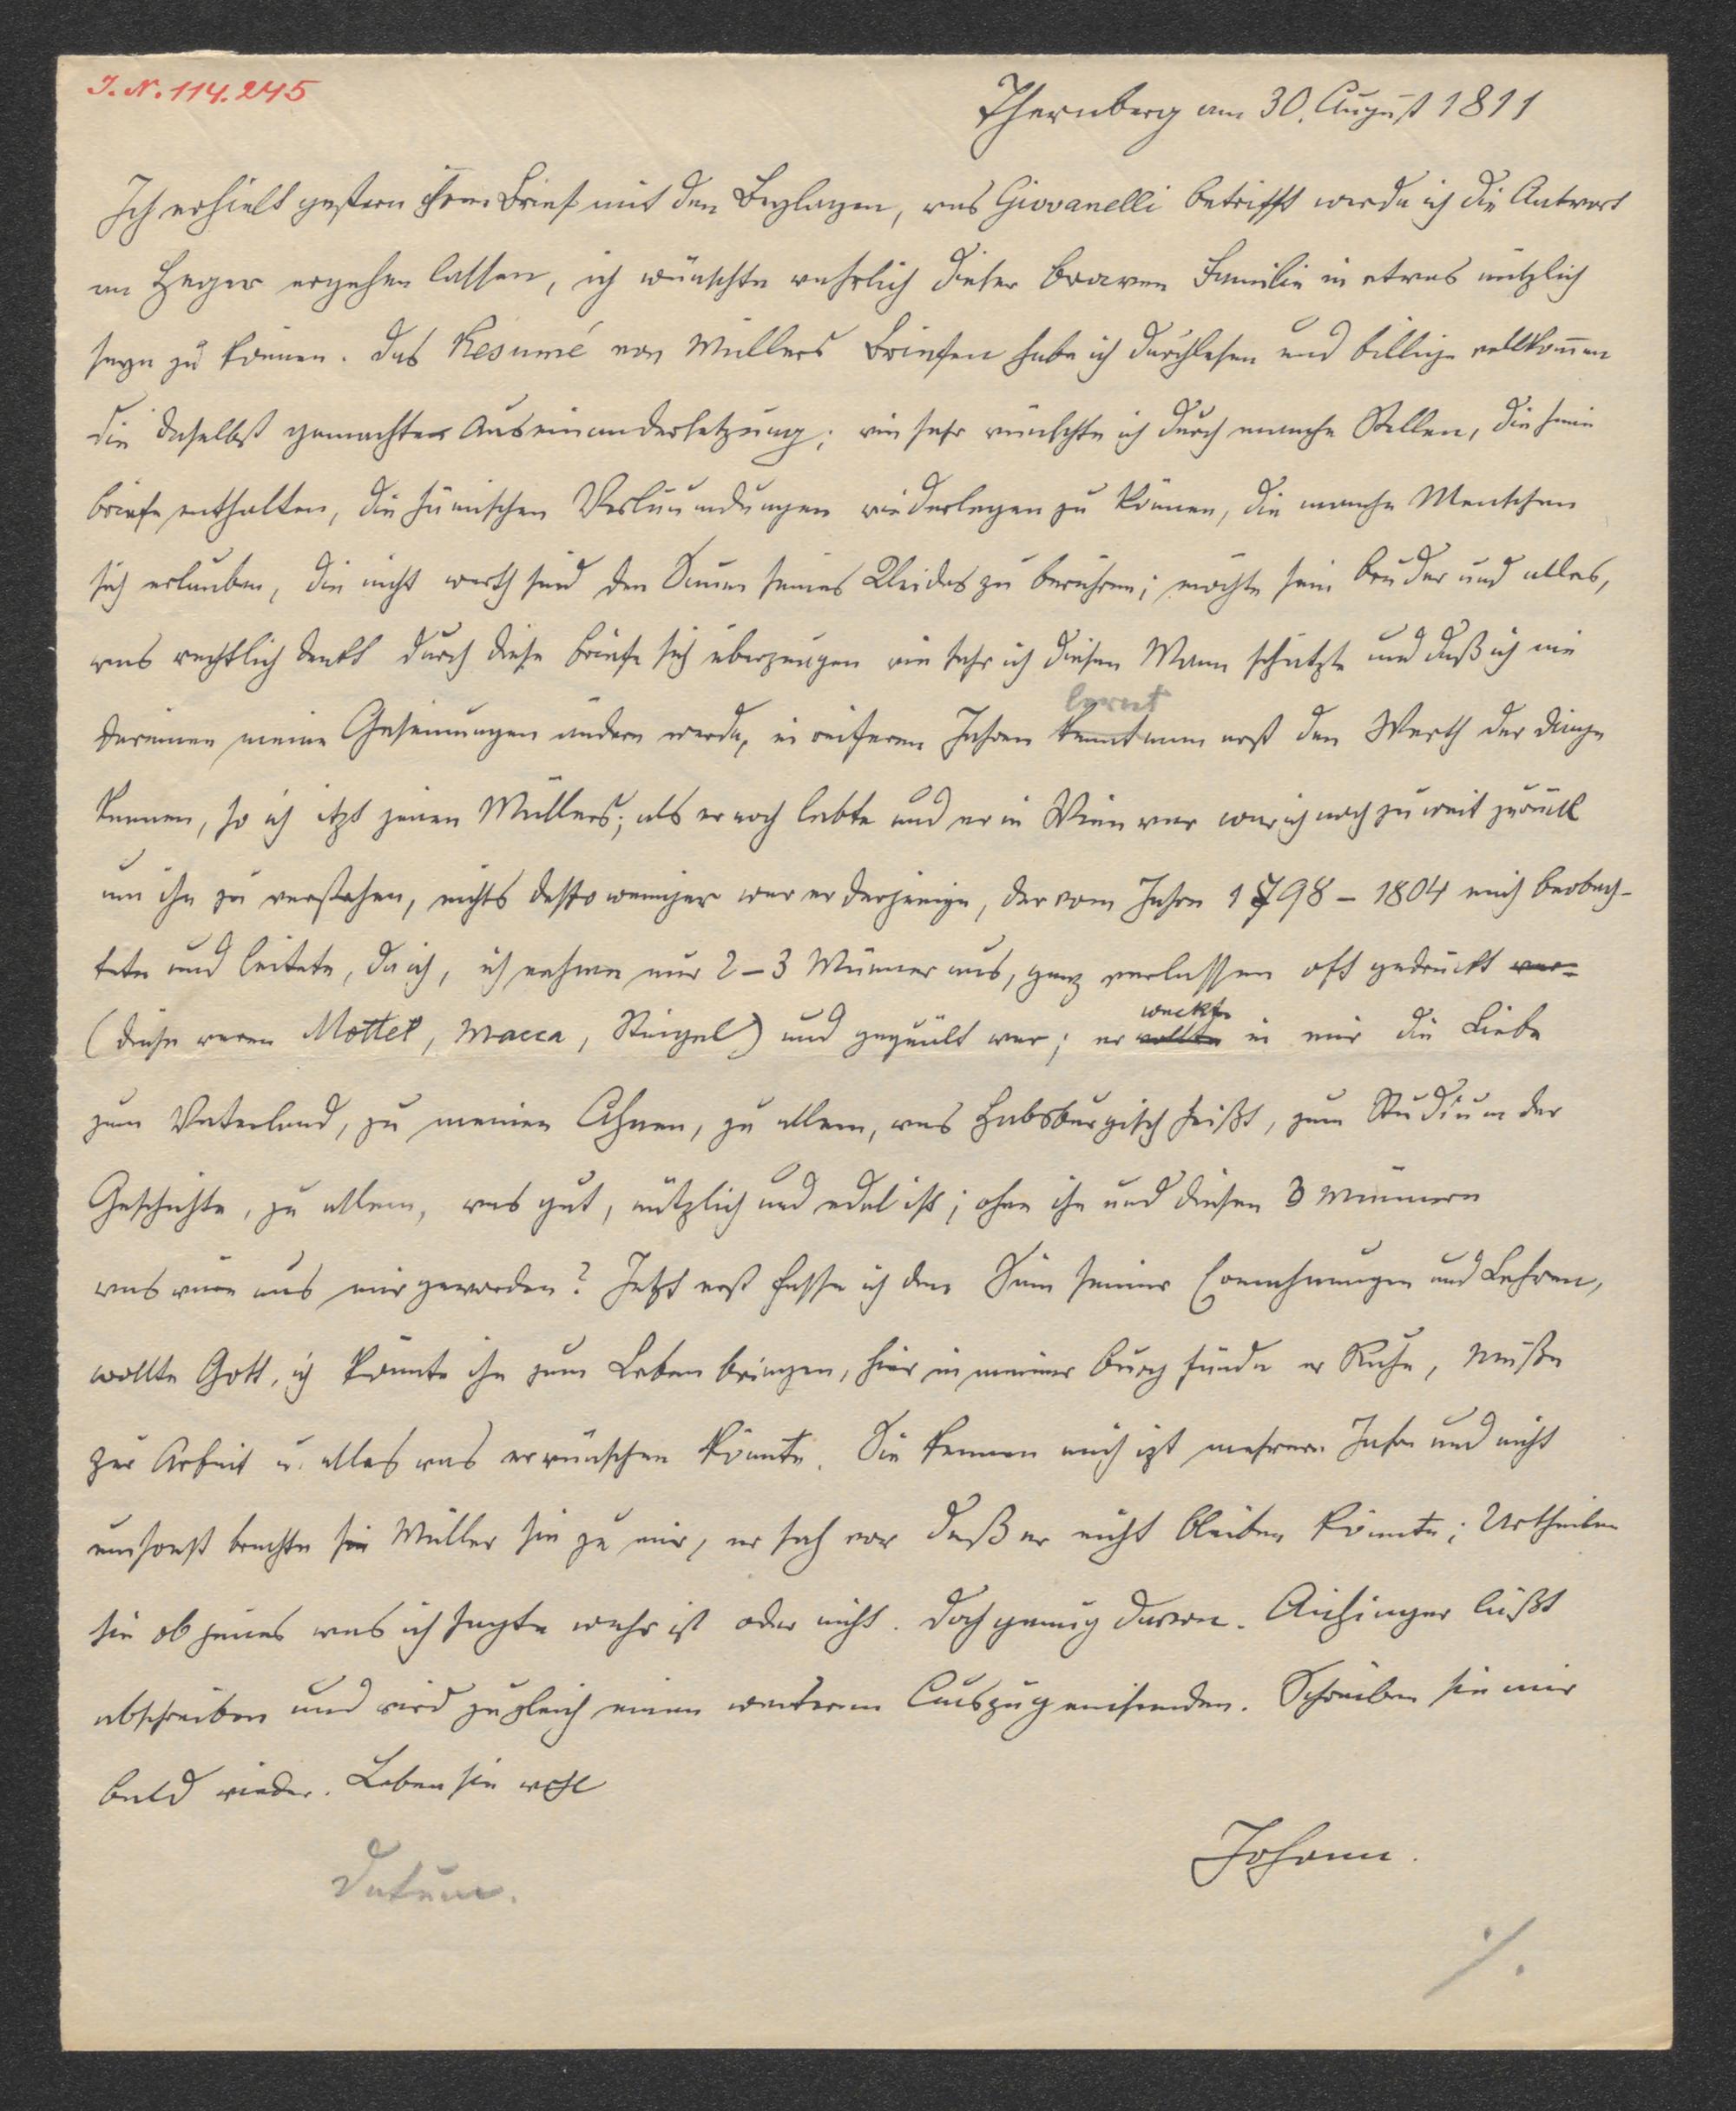 I. N. 114.245
Thernberg am 30. August 1811
Ich erhielt gestern ihren Brief mit den Beylagen, was Giovanelli betrifft werde ich die Antwort
an Heger ergehen lassen, ich wünschte wahrlich dieser braven Familie in etwas nützlich
seyn zu können. Das Resumé von Müllers Briefen habe ich durchlesen und billige vollkom̄en
die daselbst gemachte Auseinandersetzung; wie sehr wünschte ich durch manche Stellen, die seine
Briefe enthalten, die hämischen Verläumdungen wiederlegen zu können, die manche Menschen
sich erlauben, die nicht werth sind den Saum seines Kleides zu berühren; möchte sein Bruder und alles,
was rechtlich denkt durch diese Briefe sich überzeugen wie sehr ich diesen Mann schätzte und daß ich nie
darinnen meine Gesinnungen ändern werde, in reiferen Jahren kennt man erst den Werth der Dinge
lernt
kennen, so ich itzt jenen Müllers; als er noch lebte und er in Wien war war ich noch zu weit zurück
um ihn zu verstehen, nichts desto weniger war er derjenige, der vom Jahre 1798 – 1804 mich beobach-
tete und leitete, da ich, ich nehme nur 2–3 Männer aus, ganz verlassen oft gedrückt war
(diese waren Mottet, Macca, Steigel) und gequält war; er wollte in mir die Liebe
weckte
zum Vaterland, zu meinen Ahnen, zu allem, was Habsburgisch heißt, zum Studium der
Geschichte, zu allem, was gut, nützlich und edel ist; ohne ihn und diesen 3 Männern
was wäre aus mir geworden? Jetzt erst fasse ich den Sinn seiner Ermahnungen und Lehren,
wollte Gott, ich könnte ihn zum Leben bringen, hier in meiner Burg fände er Ruhe, Muße
zur Arbeit u. alles was er wünschen könnte. Sie kennen mich izt mehrere Jahre und nicht
umsonst brachte sie Müller hin zu mir, er sah vor daß er nicht bleiben könnte; Urtheilen
sie ob jenes was ich sagte wahr ist oder nicht. Doch genug davon. Aichinger läßt
abschreiben und wird zugleich einen weiteren Auszug einsenden. Schreiben sie mir
bald wieder. Leben sie wohl
Johann.
Datum.
./.